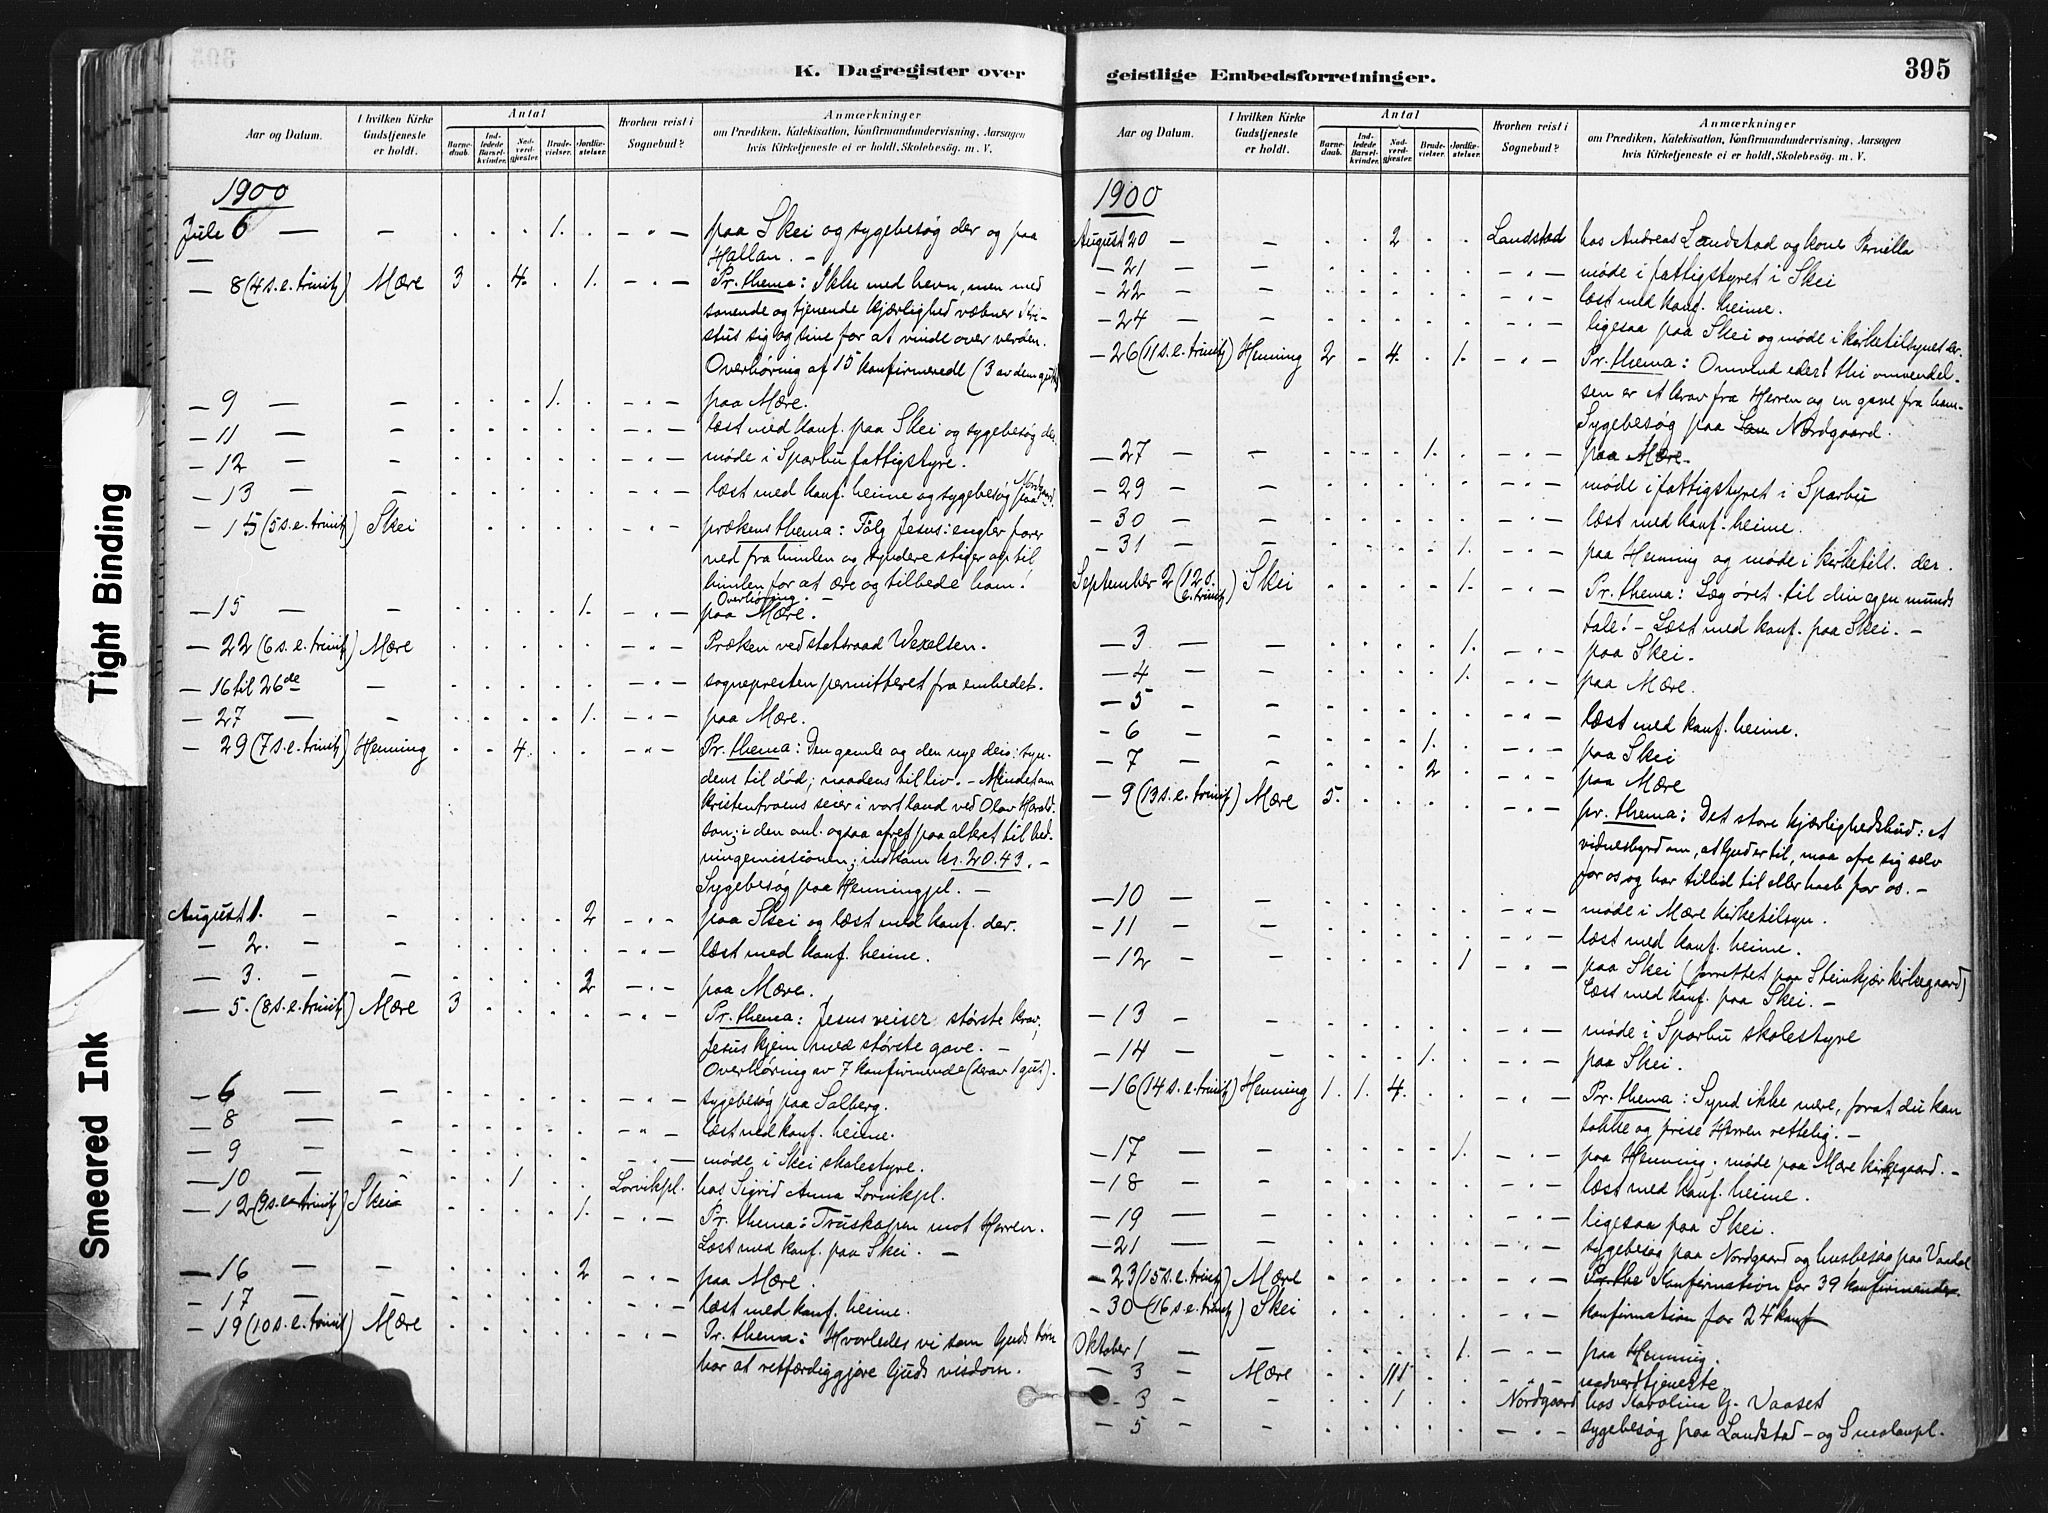 K. Dagregister over
Aar og Datum.
I hvilken Kirke Gudstjeneste er holdt.
Antal
Barnedaab.
Indledede Barselkvinder.
Nadverdgjester.
Brudevielser.
Jordfæstelser.
Hvorhen reist i Sognebud?
Anmærkninger
om Prædiken, Katekisation, Konfirmandundervisning, Aarsagen
hvis Kirketjeneste ei er holdt, Skolebesøg. m. V.
1900
Jule 6 — - 1. - " - paa Skei og sygebesøg der og paa
Hallan. -
— 8 (4 s. e. trinit) Mære 3 4. 1. - " - Pr. thema: Ikke med hevn, men med
sonende og tjenende kjærlighed væbner Kri-
stus sig og sine for at vinde over verden.
Overhøring af 15 konfirmerede (3 av dem gutter)
— 9 — - 1. - " - paa Mære.
— 11 — - - " - læst med konf. paa Skei og sygebesøg der.
— 12 — - - " - møde i Sparbu fattigstyre.
— 13 — - - " - læst med konf. heime og sygebesøg paa Nordgaard.
— 15 (5 s. e. trinit) Skei - " - prækens thema: Følg Jesus: engler farer
ned fra himlen og syndere stiger op til
himlen for at ære og tilbede ham!
Overhøring. -
— 15 — - 1. - " - paa Mære.
— 22 (6 s. e. trinit) Mære - " - Præken ved statsraad Wexelsen.
— 16 til 26de - - " - sognepresten permitteret fra embedet.
— 27 — - 1. - " - paa Mære.
— 29 (7 s. e. trinit) Henning 4. - " - Pr. thema: Den gamle og den nye deig: syn-
dens til død; naadens til liv. - Mindet om
kristentroens seier i vort land ved Olav Harald-
son; i den anl. ogsaa ofret paa altret til hed-
ningemissionen; indkom kr. 20.43. -
Sygebesøg paa Henningpl. -
August 1. - - 2 - " - paa Skei og læst med konf. der.
— 2. - - - " - læst med konf. heime.
— 3. - - 2 - " - paa Mære.
— 5. (8 s. e. trinit) Mære 3 - " - Pr. thema: Jesus veiser største krav,
Jesus kjem med største gave. -
Overhøring av 7 konfirmerede (derav 1 gut).
— 6 — - - " - sygebesøg paa Salberg.
— 8 — - - " - læst med konf. heime.
— 9 — - - " - møde i Skei skolestyre.
— 10 — - 1 Lorvikpl. hos Sigrid Anna Lorvikpl.
— 12 (9 s. e. trinit) Skei 1. - " - Pr. thema: Truskapen mot Herren.
Læst med konf. paa Skei. -
— 16 — - 2 - " - paa Mære.
— 17 — - - " - læst med konf. heime.
— 19 (10 s. e. trinit) Mære - " - Pr. thema: Hvorledes vi som Guds børn
har at retfærdiggjøre Guds visdom.
geistlige Embedsforretninger.
395
Aar og Datum.
I hvilken Kirke Gudstjeneste er holdt.
Antal
Barnedaab.
Indledede Barselkvinder.
Nadverdgjester.
Brudevielser.
Jordfæstelser.
Hvorhen reist i Sognebud?
Anmærkninger
om Prædiken, Katekisation, Konfirmandundervisning, Aarsagen
hvis Kirketjeneste ei er holdt, Skolebesøg. m. V.
1900
August 20 - - 2 Landstad hos Andreas Landstad og kone Pernilla
— 21 — - - " - møde i fattigstyret i Skei
— 22 — - - " - læst med konf. heime.
— 24 — - - " - ligesaa paa Skei og møde i kirketilsynet der.
— 26 (11 s. e. trinit) Henning 2 - 4. 1. - " - Pr. thema: Omvend eder! thi omvendel-
sen er et krav fra Herren og en gave fra ham.
Sygebesøg paa Nordgaard.
— 27 — - 1. - " - paa Mære.
— 29 — - - " - møde i fattigstyret i Sparbu
— 30 — - - " - læst med konf. heime.
— 31 — - 1. - " - paa Henning og møde i kirketils. der.
September 2 (12 s. e. trinit) Skei 1. - " - Pr. thema: Læg øret til din egen munds
tale! - Læst med konf. paa Skei. -
— 3 — - 1. - " - paa Skei.
— 4 — - 1. - " - paa Mære.
— 5 - - - " - læst med konf. heime.
— 6 - - 1. - " - paa Skei
— 7 — - 2 - " - paa Mære
— 9 (13 s. e. trinit) Mære 5. - " - pr. thema: Det store kjærlighedsbud: et
vidnesbyrd om, at Gud er til, maa ofre sig selv
for os og har tillid til eller haab for os. -
— 10 — - - " - møde i Mære kirketilsyn.
— 11 — - - " - læst med konf. heime.
— 12 — - 1 - " - paa Skei (forrettet paa Steinkjær kirkegaard)
Læst med konf. paa Skei. -
— 13 — - - " - møde i Sparbu skolestyre
— 14 — - 1. - " - paa Skei.
— 16 (14 s. e. trinit) Henning 1. 1. 4. - " - Pr. thema: Synd ikke mere, forat du kan
takke og prise Herren rettelig. -
— 17 — - 1. - " - paa Henning. møde paa Mære kirkegaard. -
— 18 — - - " - læst med konf. heime.
— 19 — - - " - ligesaa paa Skei.
— 21 — - - " - sygebesøg paa Nordgaard og husbesøg paa Vaadal
— 23 (15 s. e. trinit) Mære - " - Pr. the Konfirmation for 39 konfirmander.
— 30 (16 s. e. trinit) Skei - " - konfirmation for 24 konf
Oktober 1 — - 1. - " - paa Henning.
— 3 — Mære 115 - " - nadverdtjeneste
— 3 - - 1 Nordgaard hos Karolina G. Vaaset
— 5 - - - " - sygebesøg paa Landstad - og Smolanpl.
Tight Binding
Smeared Ink